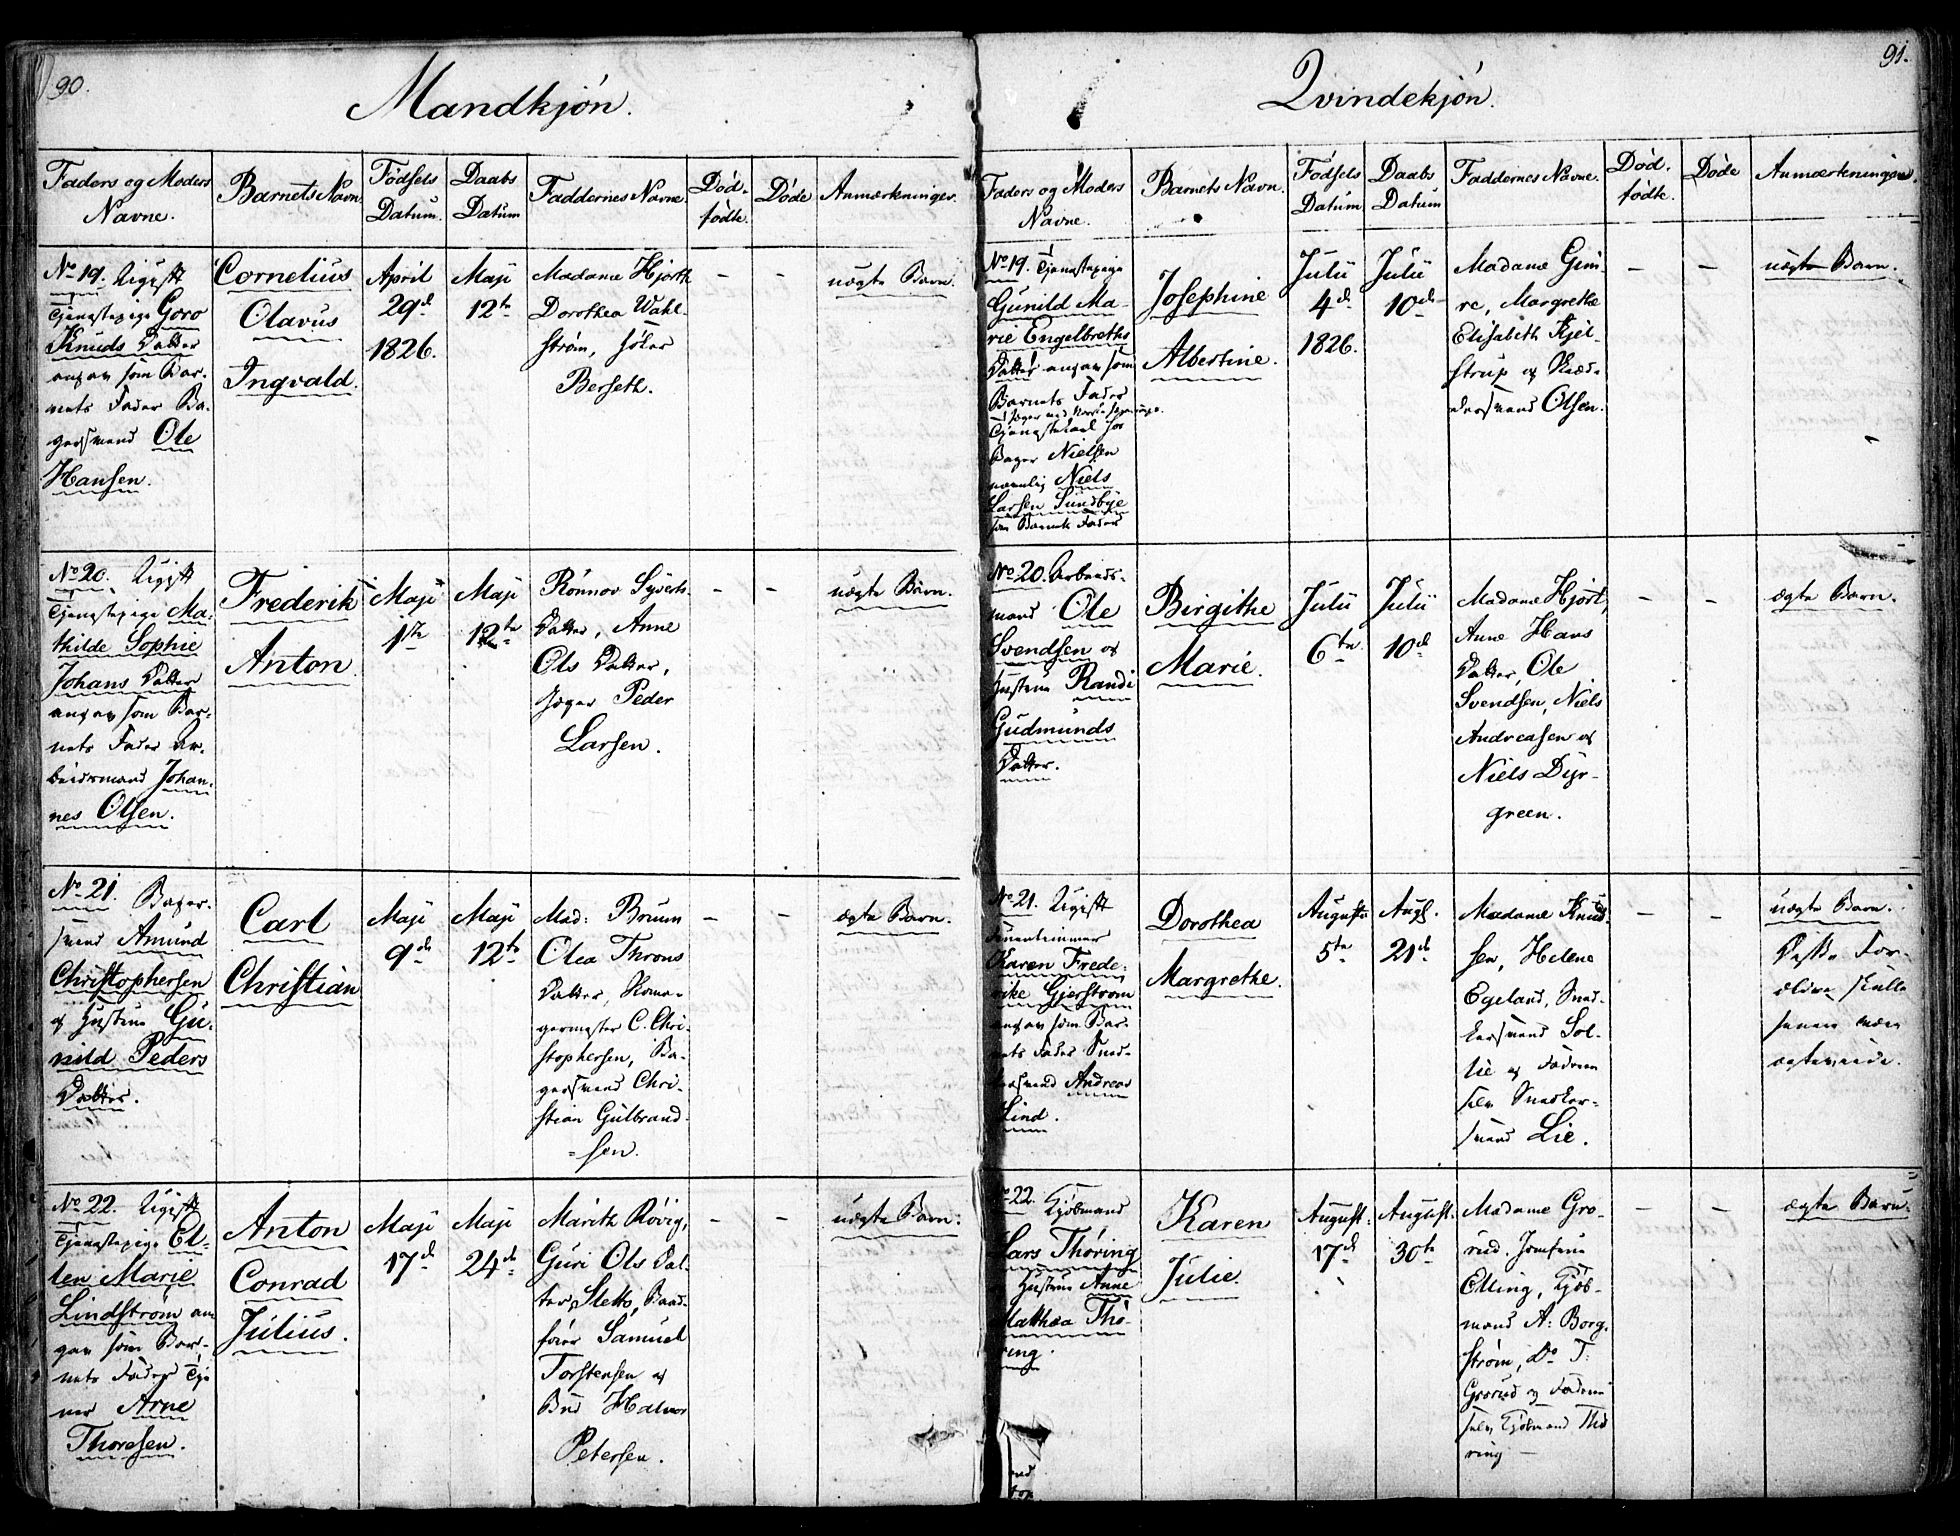 90.
Mandkjón.
Faders og Moders
Navne.
Barnets Navn
Fódsels
Datum.
Daabs
Datum
Faddernes Navne.
Dód-
fódte.
Dóde
Anmærkninger.
No 19. Ugift
Tjenestepige Goro
Knuds Datter
angav som Bar-
nets Fader Ba-
gersvend Ole
Hansen.
Cornelius
Olavus
Ingvald.
April
29d
1826.
Maji
12te
Madame Hjorth
Dorothea Wahl-
strøm,
Berseth.
-
-
uægte Barn.
No 20. Ugift
Tjenestepige Ma-
thilde Sophie
Johans Datter
angav som Bar-
nets Fader Ar-
beidsmand Johan-
nes Olsen.
Frederik
Anton
Maji
1te
Maji
12te
Rónnov Syverts
Datter, Anne
Ols Datter,
Jæger Peder
Larsen.
-
-
uægte Barn.
No 21. Bager-
svend Amund
Christophersen
og Hustrue Gu-
nild Peders
Datter.
Carl
Christian
Maji
9de
Maji
12te
Mad: Bruun
Olea Throns
Datter,
germester C. Chri-
stophersen, Ba-
gersvend Chri-
stian Gulbrand-
=sen.
-
-
ægte Barn.
No 22. Ugift
Tjenestepige El-
len Marie
Lindstrøm an-
gav som Bar-
nets Fader Tje-
ner Arne
Thoresen.
Anton
Conrad
Julius.
Maji
17d
Maji
24de
Marith Róvig,
Guri Ols Dat-
ter Sletto,
Samuel
Torstensen og
Bud Halvor
Petersen.
-
-
uægte Barn.
91.
Qvindekjón.
Faders og Moders
Navne.
Barnets Navn.
Fódsels
Datum
Daabs
Datum
Faddernes Navne.
Dód.
fódte.
Dóde
Anmærkninger.
No 19. Tjenestepige
Gunild Ma-
rie Engelbreths
Datter angav som
Barnets Fader
Tjenestekarl hos
Bager Nielsen
nemlig Niels
Larsen Sundbye
som Barnets Fader
Josephine
Albertine.
Julii
4de
1826.
Julii
10de
Madame Gun-
re, Margrethe
Elisabeth Kjel-
strup og
Olsen.
-
-
uægte Barn.
No 20. Arbeids-
mand Ole
Svendsen og
Hustrue Randi
Gudmunds
Datter.
Birgithe
Marie.
Julii
6te
Julii
10d
Madame Hjort,
Anne Hans
Datter, Ole
Svendsen, Niels
Andreasen og
Niels Dyr-
green.
-
-
ægte Barn.
No 21. Ugift
Fruentimmer
Karen Frede-
rike Gjerstrøm
angav som Bar-
nets Fader Sned-
kersvend Andreas
Lind.
Dorothea
Margrethe.
Augustii
5te
Augs.
21d
Madame Knud-
sen, Helene
Egeland, Sned-
kersvend Sol-
lie og Faderen
selv Snedker-
svend Lie.
-
-
uægte Barn.
Disse For-
ældre skulle
senere være
ægteviede.
No 22. Kjóbmand
Lars Thóring
Hustrue Anne
Mathea Thó-
ring.
Karen
Julie.
August.
17d
August.
30te
Madame Gro-
rud, Jomfrue
Elling, Kjób-
mand A: Borg-
strøm, Do T:
Grorud og Faderen
selv Kjóbmand Thó
ring -
-
-
ægte Barn.